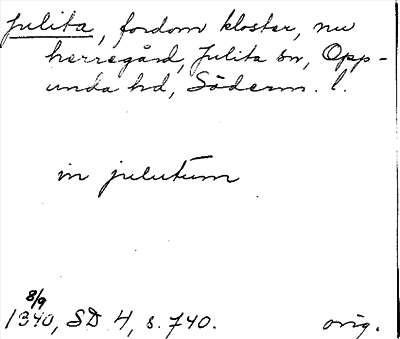 Julita, fordom kloster, nu
herregård, Julita sn, Opp-
unda hd, Söderm. l.
in julutum
8/9
1340, SD 4, s. 740.
orig.